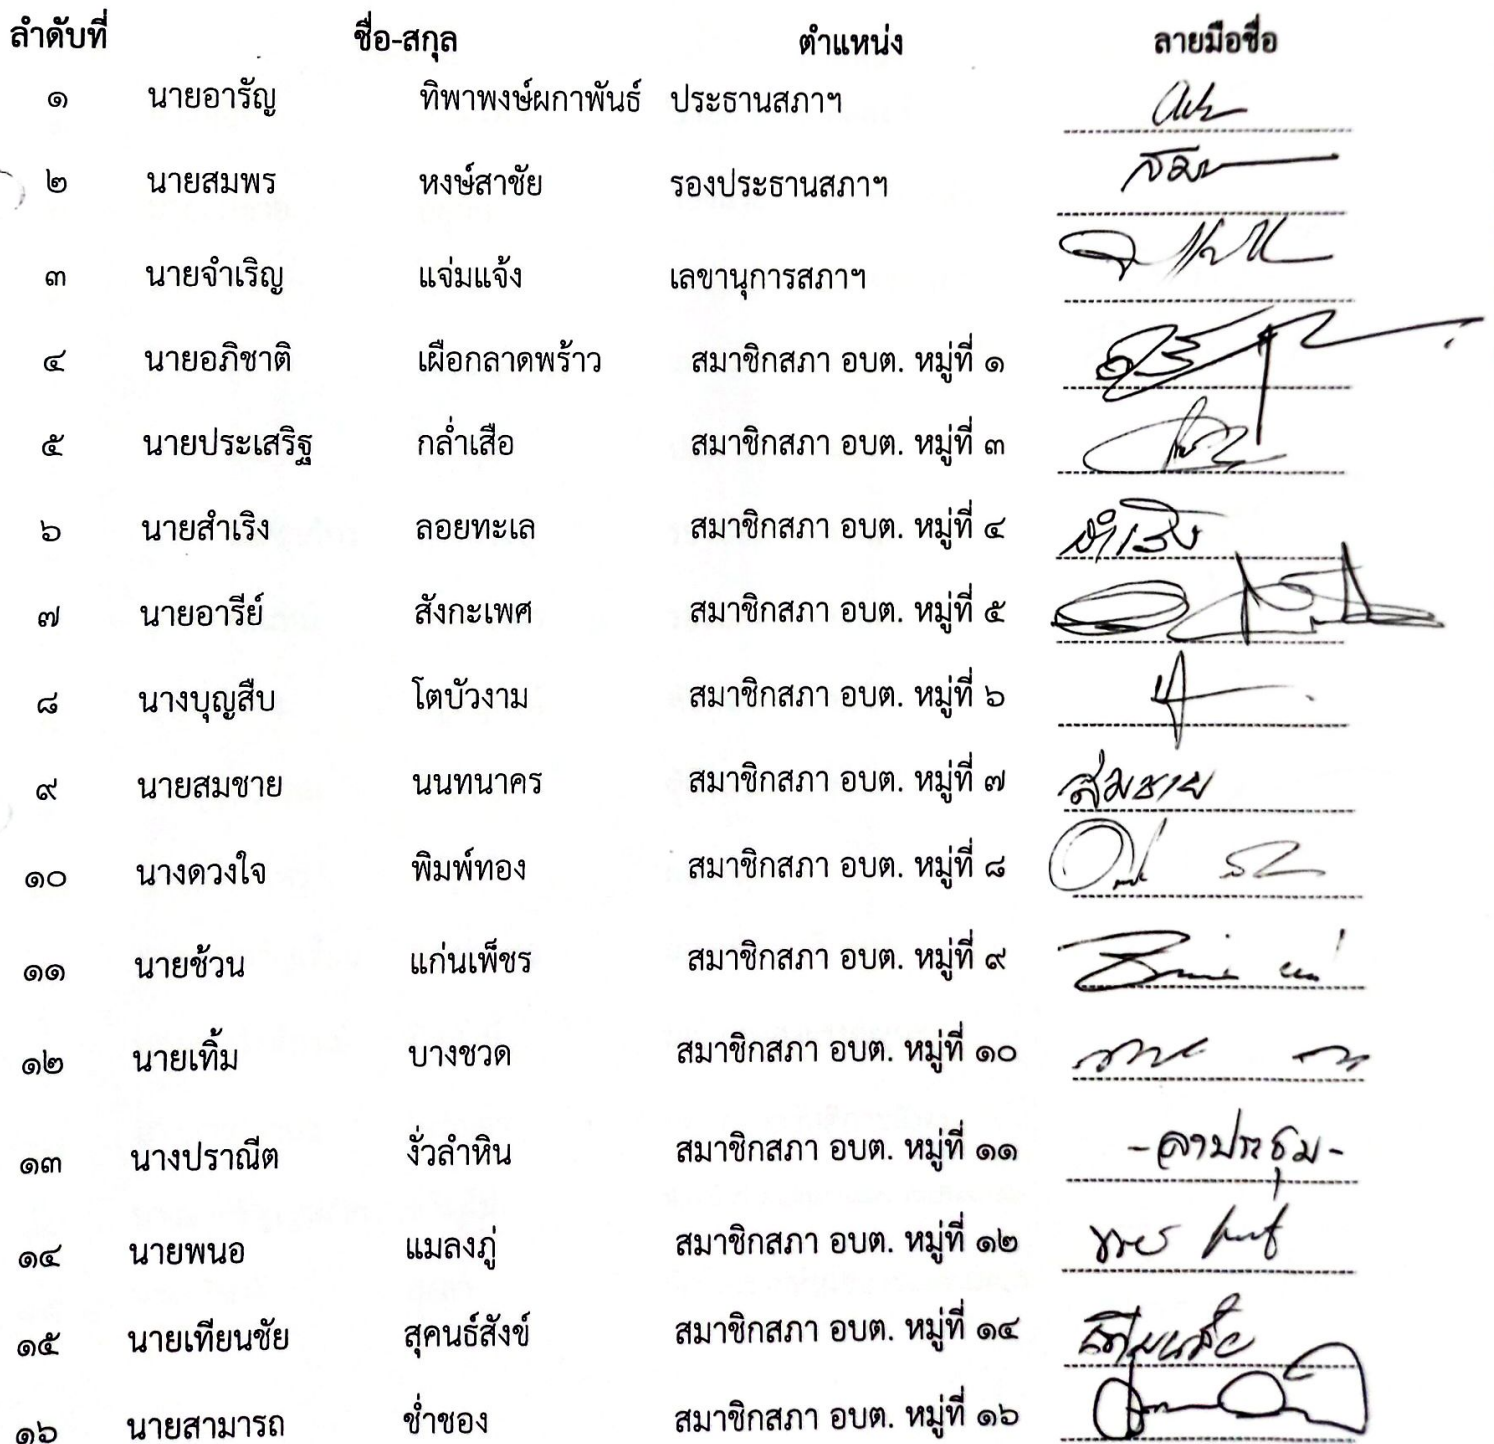 ลำดับที่ ชื่อ-สกุล ตำแหน่ง ลายมือชื่อ
๑ นายอารัญ ทิพาพงษ์ผกาพันธ์ ประธานสภาฯ
๒ นายสมพร หงษ์สาชัย รองประธานสภาฯ
๓ นายจำเริญ แจ่มแจ้ง เลขานุการสภาฯ
๔ นายอภิชาติ เผือกลาดพร้าว สมาชิกสภา อบต. หมู่ที่ ๑
๕ นายประเสริฐ กล่ำเสือ สมาชิกสภา อบต. หมู่ที่ ๓
๖ นายสำเริง ลอยทะเล สมาชิกสภา อบต. หมู่ที่ ๔ สำเริง
๗ นายอารีย์ สังกะเพศ สมาชิกสภา อบต. หมู่ที่ ๕
๘ นางบุญสืบ โตบัวงาม สมาชิกสภา อบต. หมู่ที่ ๖
๙ นายสมชาย นนทนาคร สมาชิกสภา อบต. หมู่ที่ ๗ สมชาย
๑๐ นางดวงใจ พิมพ์ทอง สมาชิกสภา อบต. หมู่ที่ ๘
๑๑ นายช้วน แก่นเพ็ชร สมาชิกสภา อบต. หมู่ที่ ๙
๑๒ นายเทิ้ม บางชวด สมาชิกสภา อบต. หมู่ที่ ๑๐
๑๓ นางปราณีต งั่วลำหิน สมาชิกสภา อบต. หมู่ที่ ๑๑ -ลาประชุม-
๑๔ นายพนอ แมลงภู่ สมาชิกสภา อบต. หมู่ที่ ๑๒
๑๕ นายเทียนชัย สุคนธ์สังข์ สมาชิกสภา อบต. หมู่ที่ ๑๔ เทียนชัย
๑๖ นายสามารถ ช่ำชอง สมาชิกสภา อบต. หมู่ที่ ๑๖